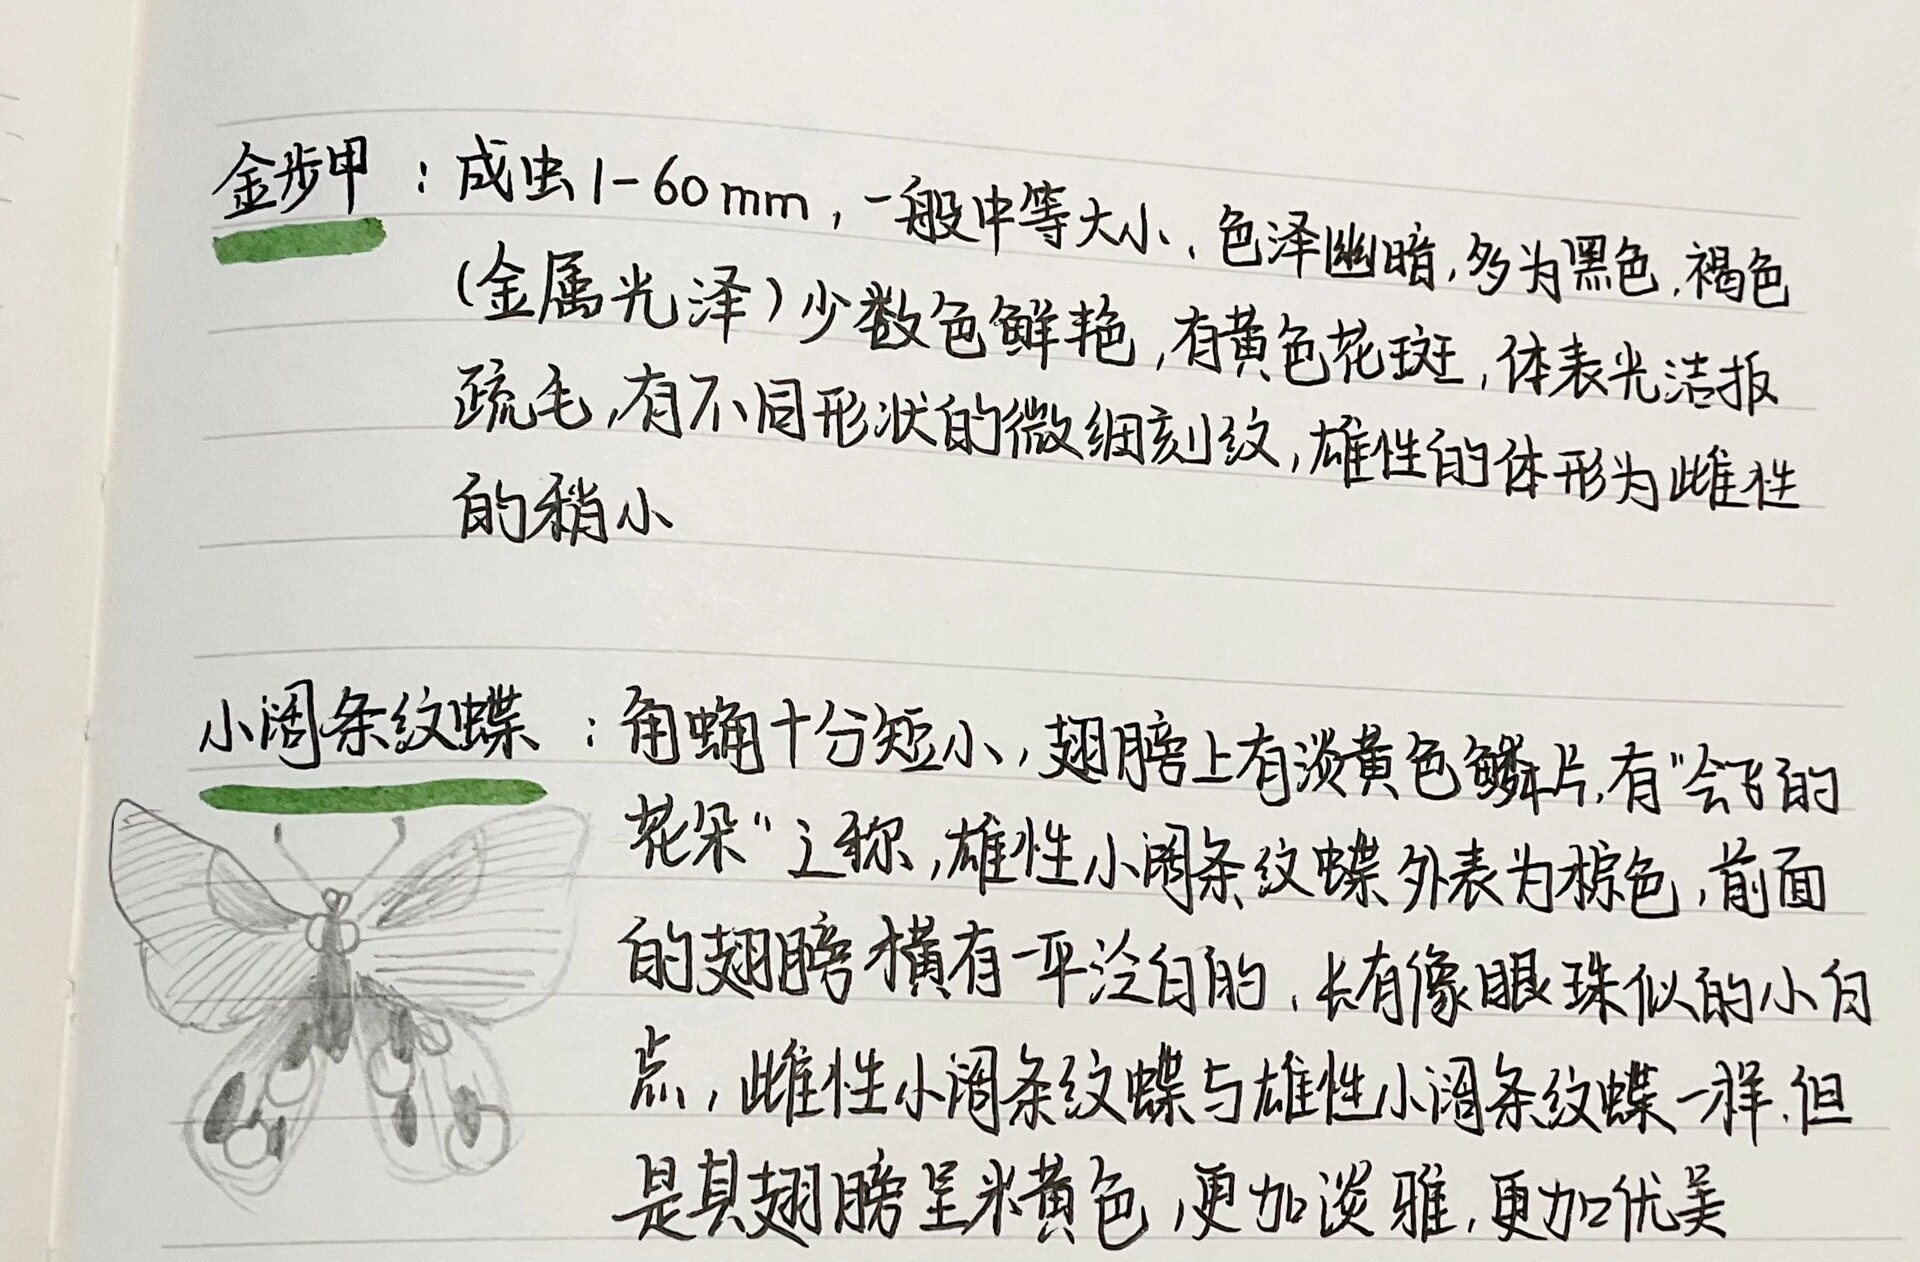 金步甲：成虫1-60mm，一般中等大小、色泽幽暗，多为黑色，褐色
(金属光泽)少数色鲜艳，有黄色花斑，体表光洁报
疏毛，有不同形状的微细刻纹，雄性的体形为雌性
的稍小
小阔条纹蝶：角蛹十分短小，翅膀上有淡黄色鳞片，有"会飞的
花朵"之称，雄性小阔条纹蝶外表为棕色，前面
的翅膀横有一平泾白的，长有像眼珠似的小白
点，雌性小阔条纹蝶与雄性小阔条纹蝶一样，但
是其翅膀呈米黄色，更加淡雅，更加优美